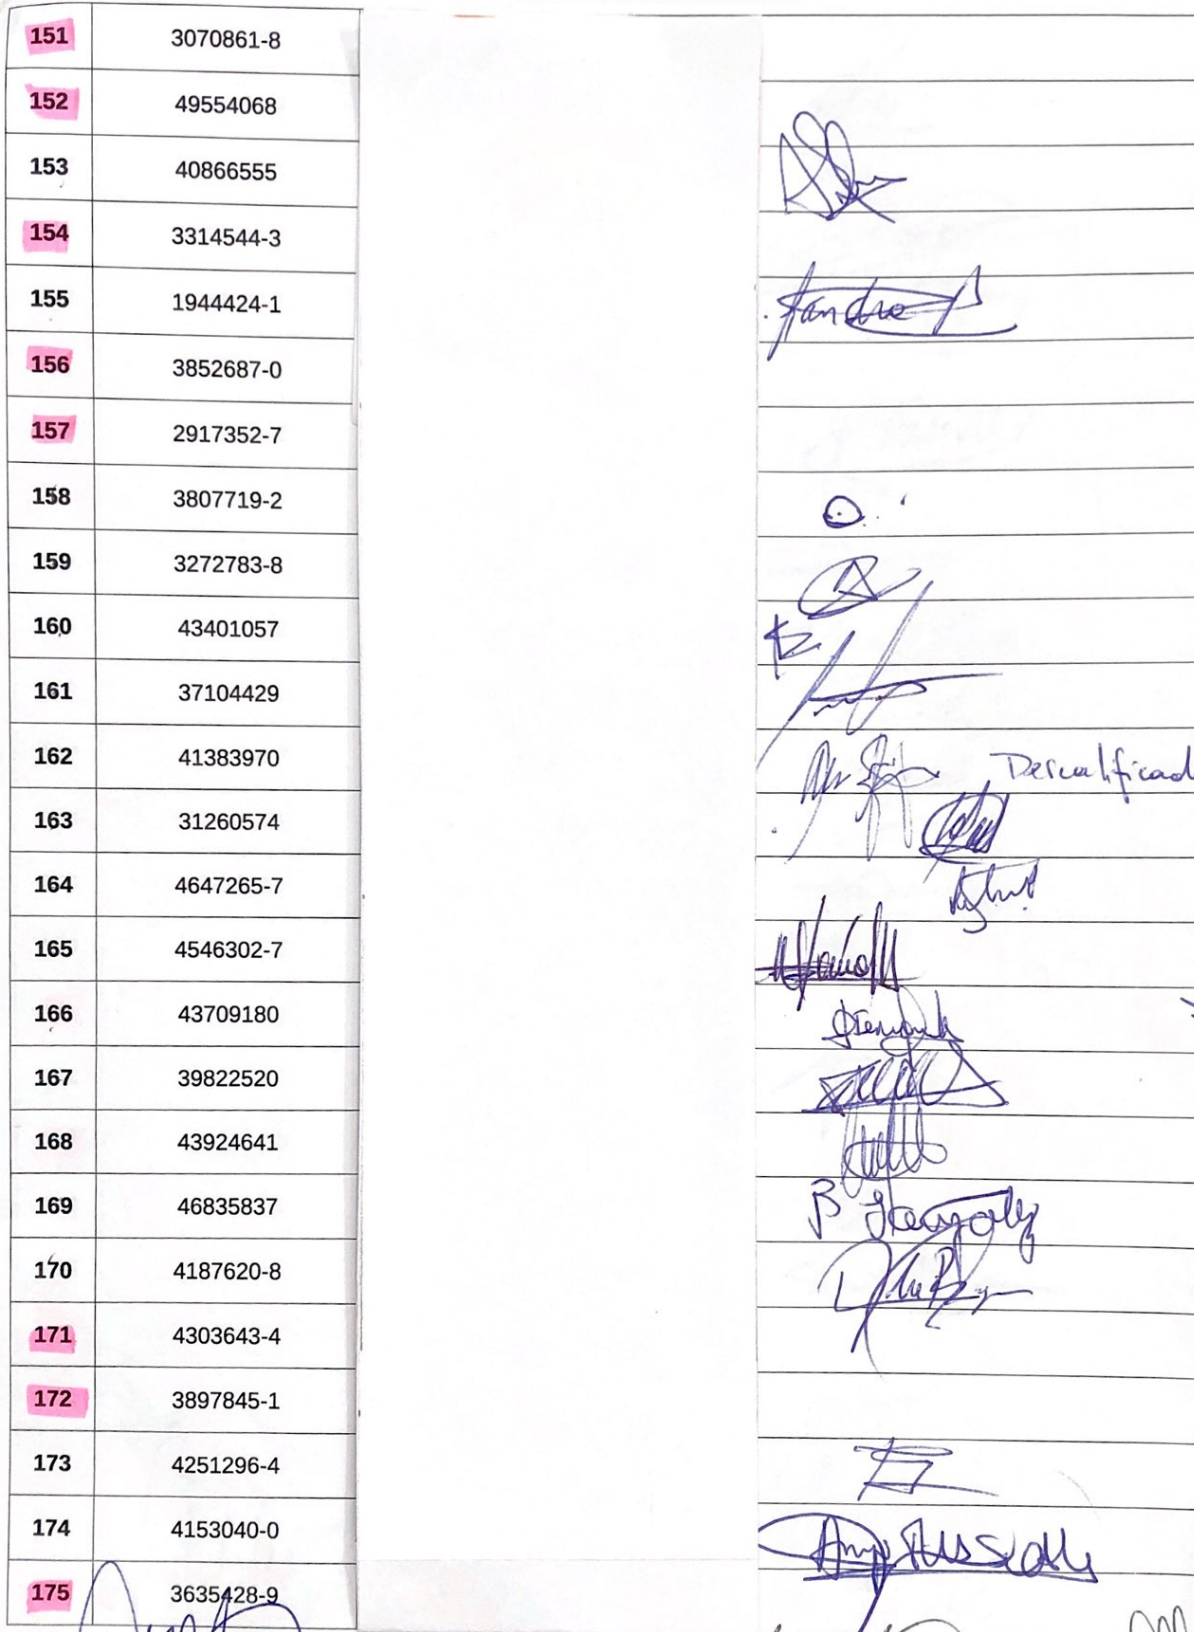 151 3070861-8
152 49554068
153 40866555
154 3314544-3
155 1944424-1
156 3852687-0
157 2917352-7
158 3807719-2
159 3272783-8
160 43401057
161 37104429
162 41383970 Descalificad
163 31260574
164 4647265-7
165 4546302-7
166 43709180
167 39822520
168 43924641
169 46835837
170 4187620-8
171 4303643-4
172 3897845-1
173 4251296-4
174 4153040-0
175 3635428-9